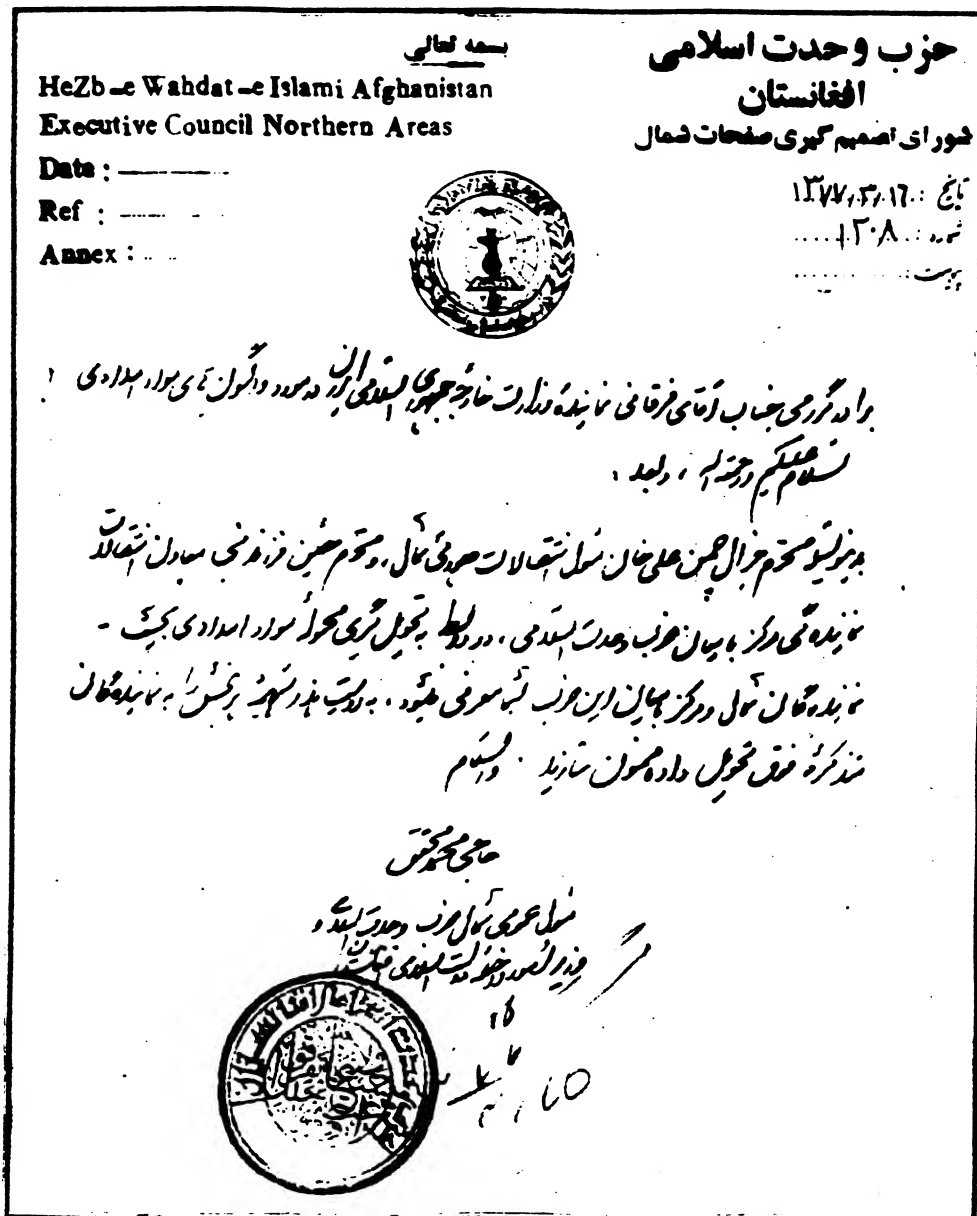 بسمه تعالی
حزب وحدت اسلامی
افغانستان
شورای تصمیم گیری صفحات شمال
HeZb-e Wahdat-e Islami Afghanistan
Executive Council Northern Areas
Date :
Ref :
Annex :
تاریخ : ۱۳۷۷٫۳٫۱٦
شماره : ۱۳۰۸
پیوست :
برادر گرامی جناب آقای فرقانی نماینده وزارت خارجه جمهوری اسلامی ایران در مورد واگون های مواد امدادی !
السلام علیکم ورحمة الله ، وبعد :
بدینوسیله محترم جنرال حسن علی خان مسئول انتقالات عمومی شمال ، ومحترم حسین معاون انتقالات
نمایندگی مرکز بامیان حزب وحدت اسلامی ، در رابطه به تحویل گیری محموله مواد امدادی بحیث -
نماینده گان شمال ومرکز بامیان این حزب بشما معرفی میشود ، را به نماینده گان
متذکره فوق تحویل داده ممنون سازید . والسلام
حاجی محمد محقق
مسئول عمومی شمال حزب وحدت اسلامی و
وزیر امور داخله دولت اسلامی افغانستان